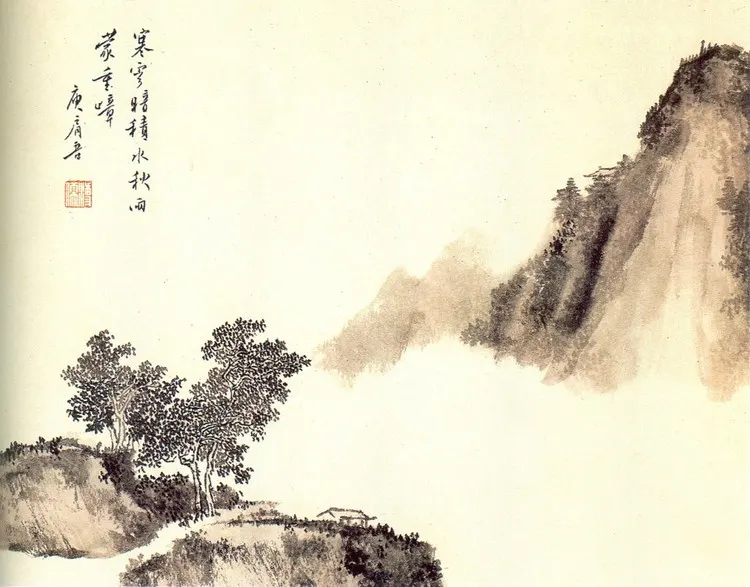 寒雲暗積水秋雨
蒙重嶂
庾肩吾